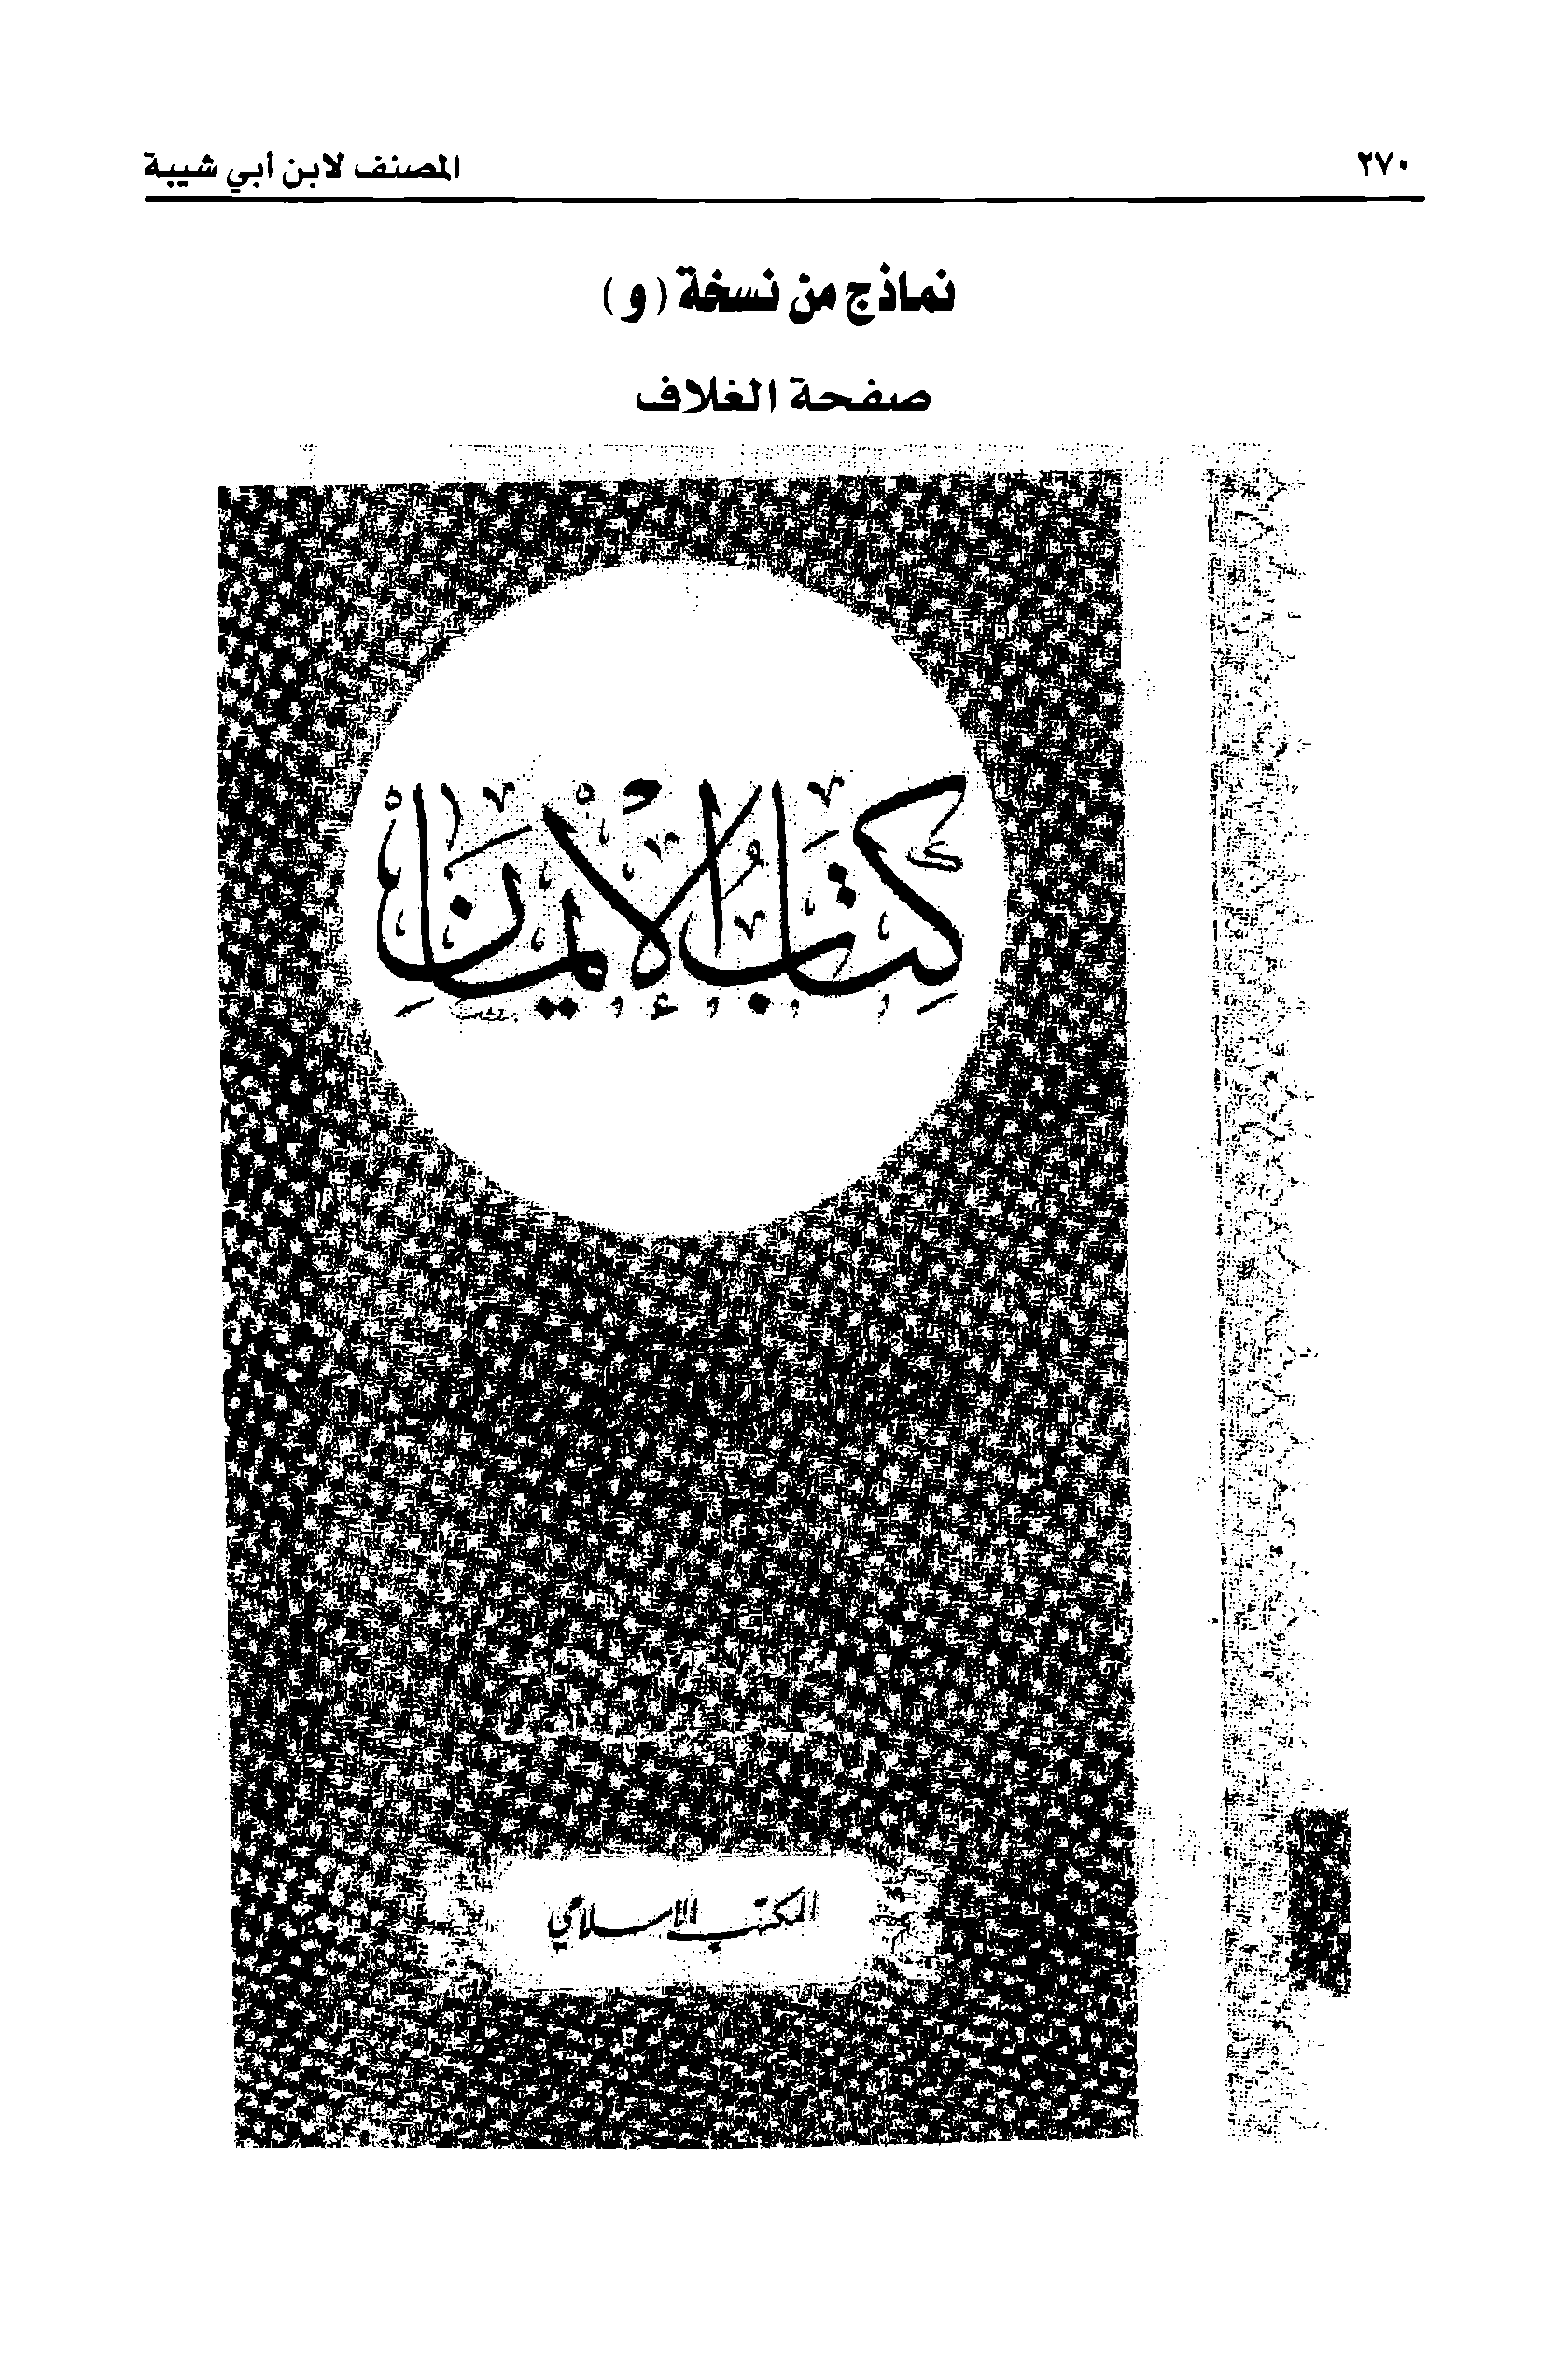 ٢٧٠
المصنف لابن أبي شيبة
نماذج من نسخة (و)
صفحة الغلاف
كِتَابُ الْإِيمَانِ
المكتب الإسلامي